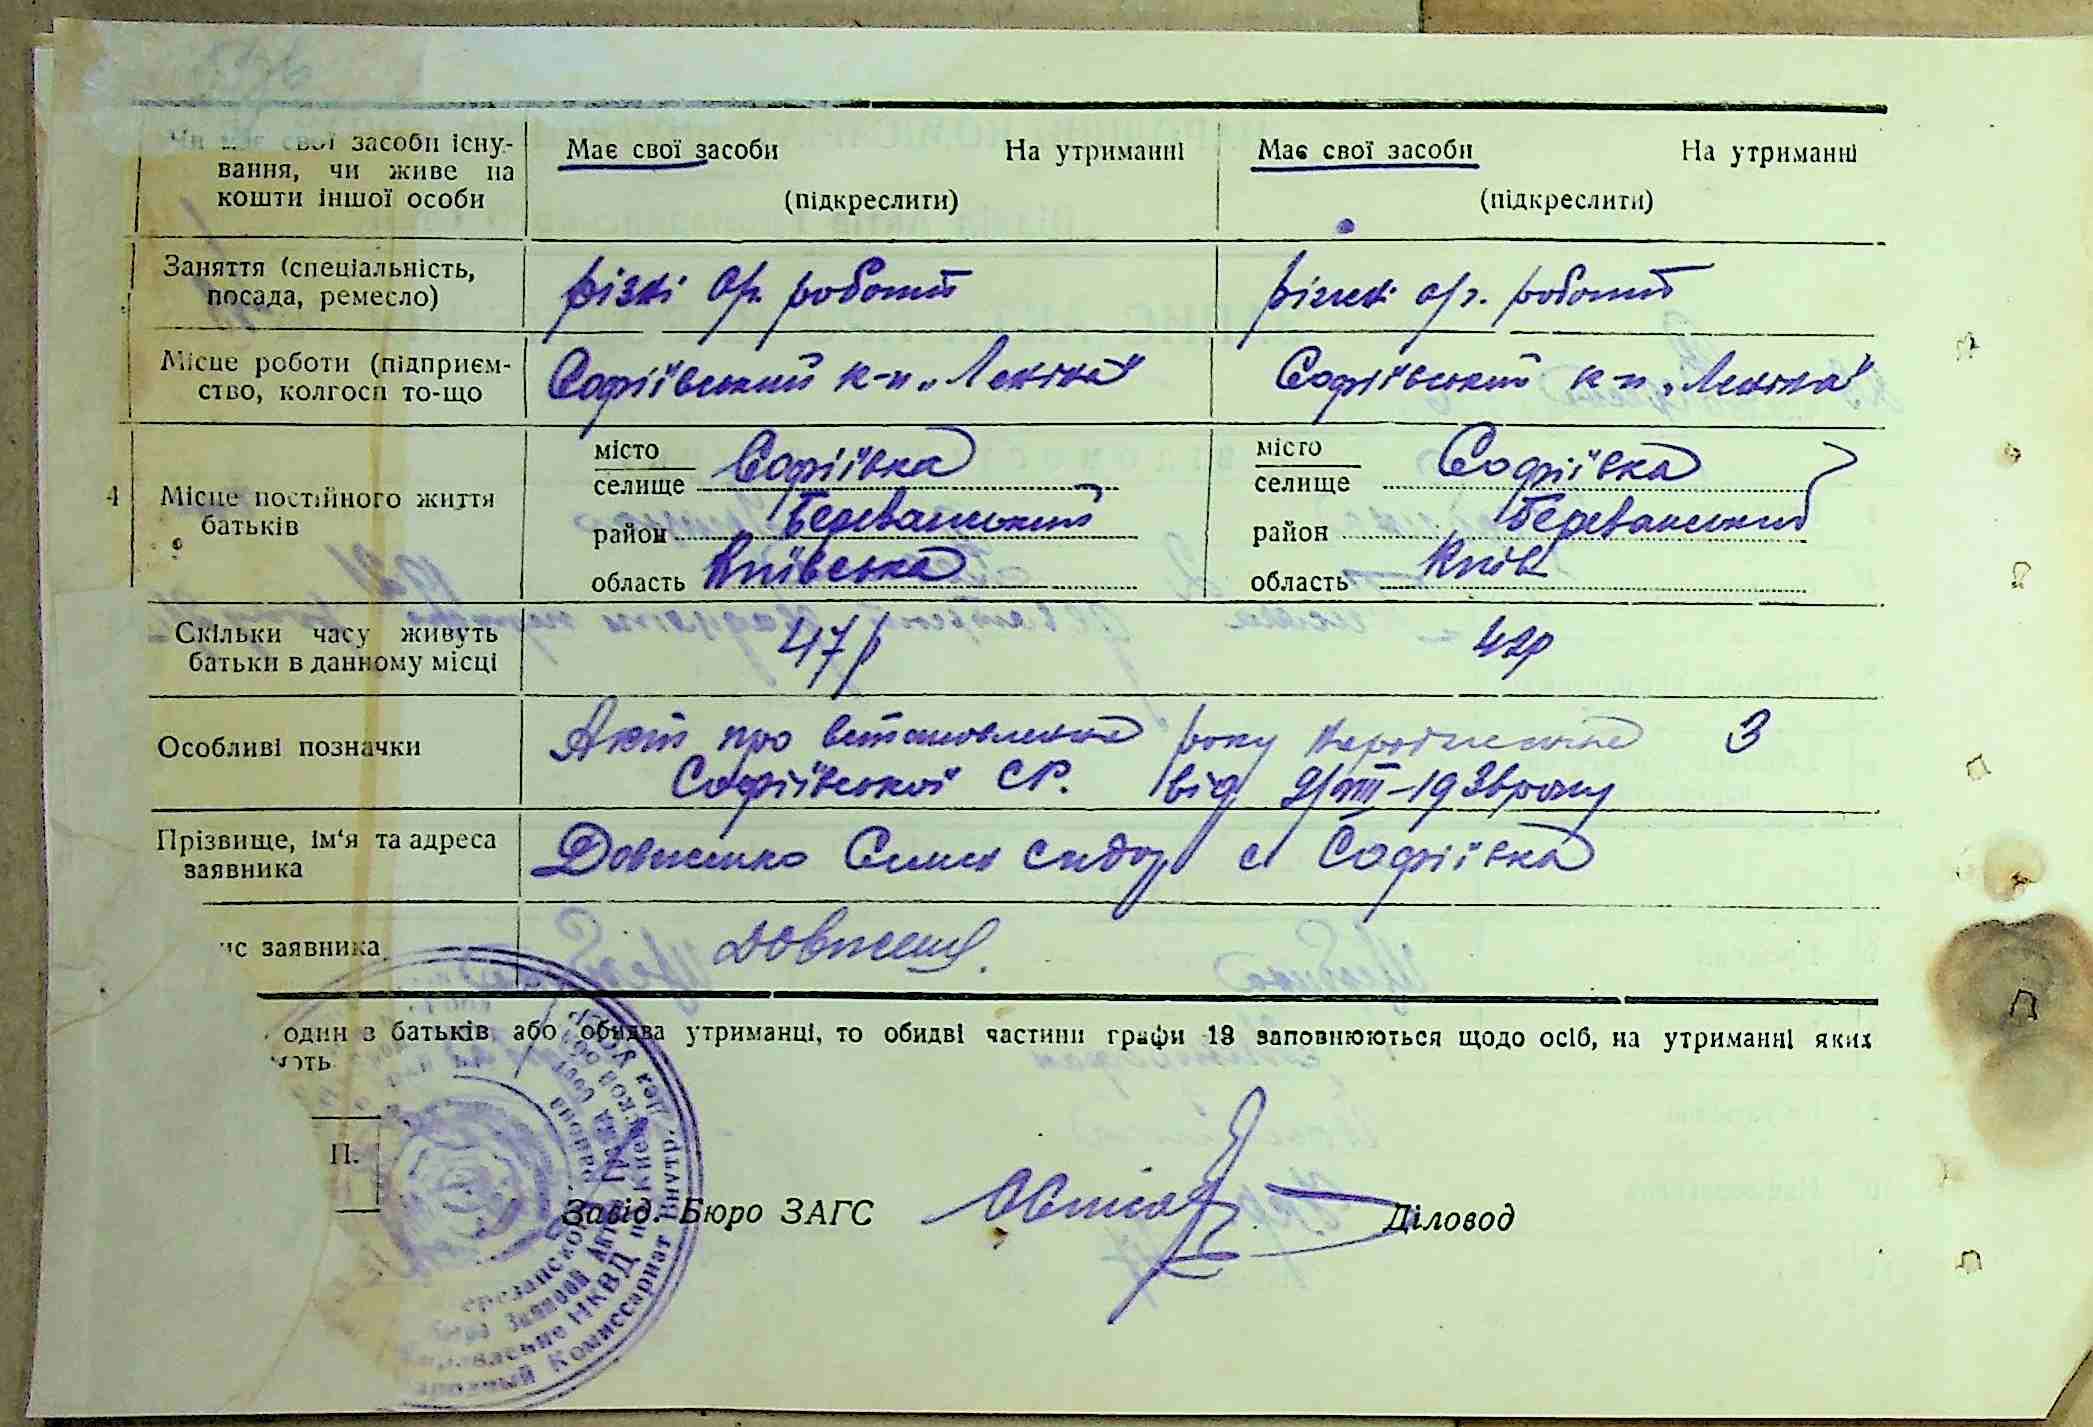 Чи має свої засоби існу-
вання, чи живе на
кошти іншої особи
Має свої засоби На утриманні
(підкреслити)
Має свої засоби На утриманні
(підкреслити)
Заняття (спеціальність,
посада, ремесло)
різні с/г. роботи
різні с/г. роботи
Місце роботи (підприєм-
ство, колгосп то-що
Софіївський к-п „Леніна"
Софіївський к-п „Леніна"
4
Місце постійного життя
батьків
місто
селище Софіївка
район Березанський
область Київська
місто
селище Софіївка
район Березанський
область Київ
Скільки часу живуть
батьки в данному місці
47 р
42р
Особливі позначки
Акт про встановлення року народження З
Софіївської СР. від 2/VIII-1938 року
Прізвище, ім'я та адреса
заявника
Довженко Семен Сидор с Софіївка
ис заявника
Довжен
один з батьків або обидва утриманці, то обидві частини графи 13 заповнюються щодо осіб, на утриманні яких
ють
П.
Завід. Бюро ЗАГС
Діловод